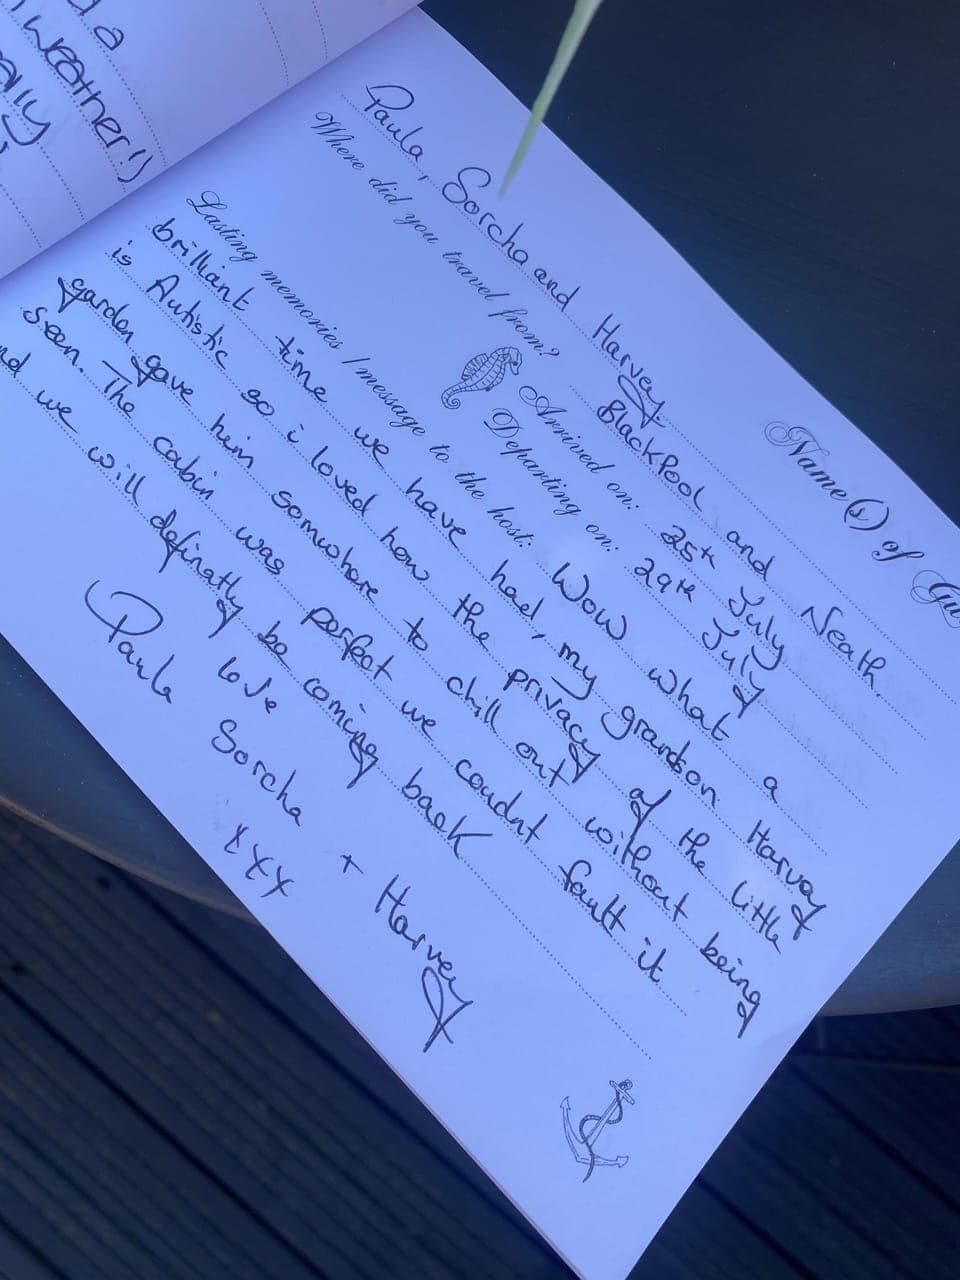 da
weather!)
ally
Name(s) of Gu
Paula, Sorcha and Harvey
Where did you travel from? BlackPool and Neath.
Arrived on: 25th July
Departing on: 29th July
Lasting memories / message to the host: Wow what a
brilliant time we have had, my grandson Harvey
is Autistic so i loved how the privacy of the little
garden gave him somwhere to chill out without being
seen. The cabin was perfect we coudnt fault it
nd we will definatly be coming back
love
Paula Sorcha + Harvey
xxx